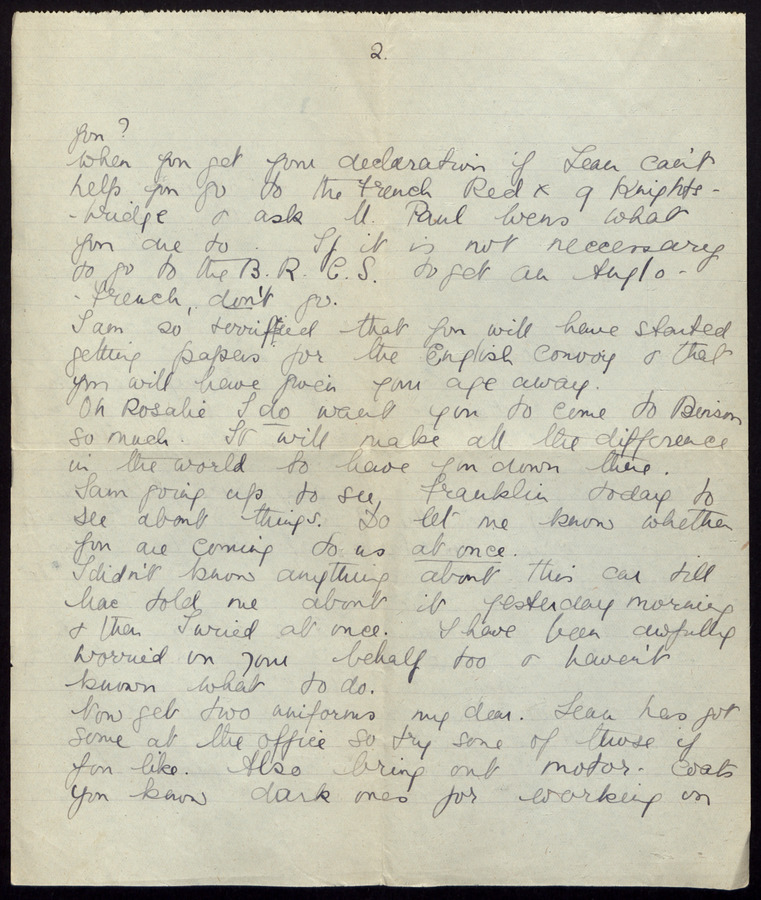 2.
you?
When you get your declaration if Lean can't
help you go to the French Red x 9 Knights-
-bridge & ask M. Paul Wens what
you are to. If it is not neccessary
to go to the B.R.C.S. to get an Anglo-
-French, don't go.
I am so terrified that you will have started
getting papers for the English Convoy & that
you will have given your age away.
Oh Rosalie I do want you to come to Binson
so much. It will make all the difference
in the world to have you down there.
I am going up to see Franklin today to
see about things. Do let me know whether
you are coming to us at once.
I didn't know anything about this car till
Mac told me about it yesterday morning
& then I wired at once. I have been awfully
worried on your behalf too & haven't
known what to do.
Now get two uniforms my dear. Lean has got
some at the office so try some of those if
you like. Also bring out motor-coats
you know dark ones for working in